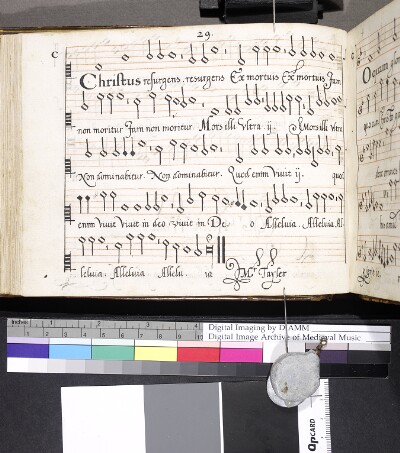 29.
C
Christus resurgens. resurgens Ex mortuis Ex mortuis Jam
non moritur Jam non moritur. Mors illi Vltra ij. Mors illi vltra
Non dominabitur. Non dominabitur. Quod enim vivit ij. quod
enim vivit vivit in deo vivit in De o Alleluia. Alleluia. Al
leluia. Alleluia. Allelu. ia Mr Tayler
Inches
1 2 3 4
Digital Imaging by DIAMM
Digital Image Archive of Medieval Music
QPCARD